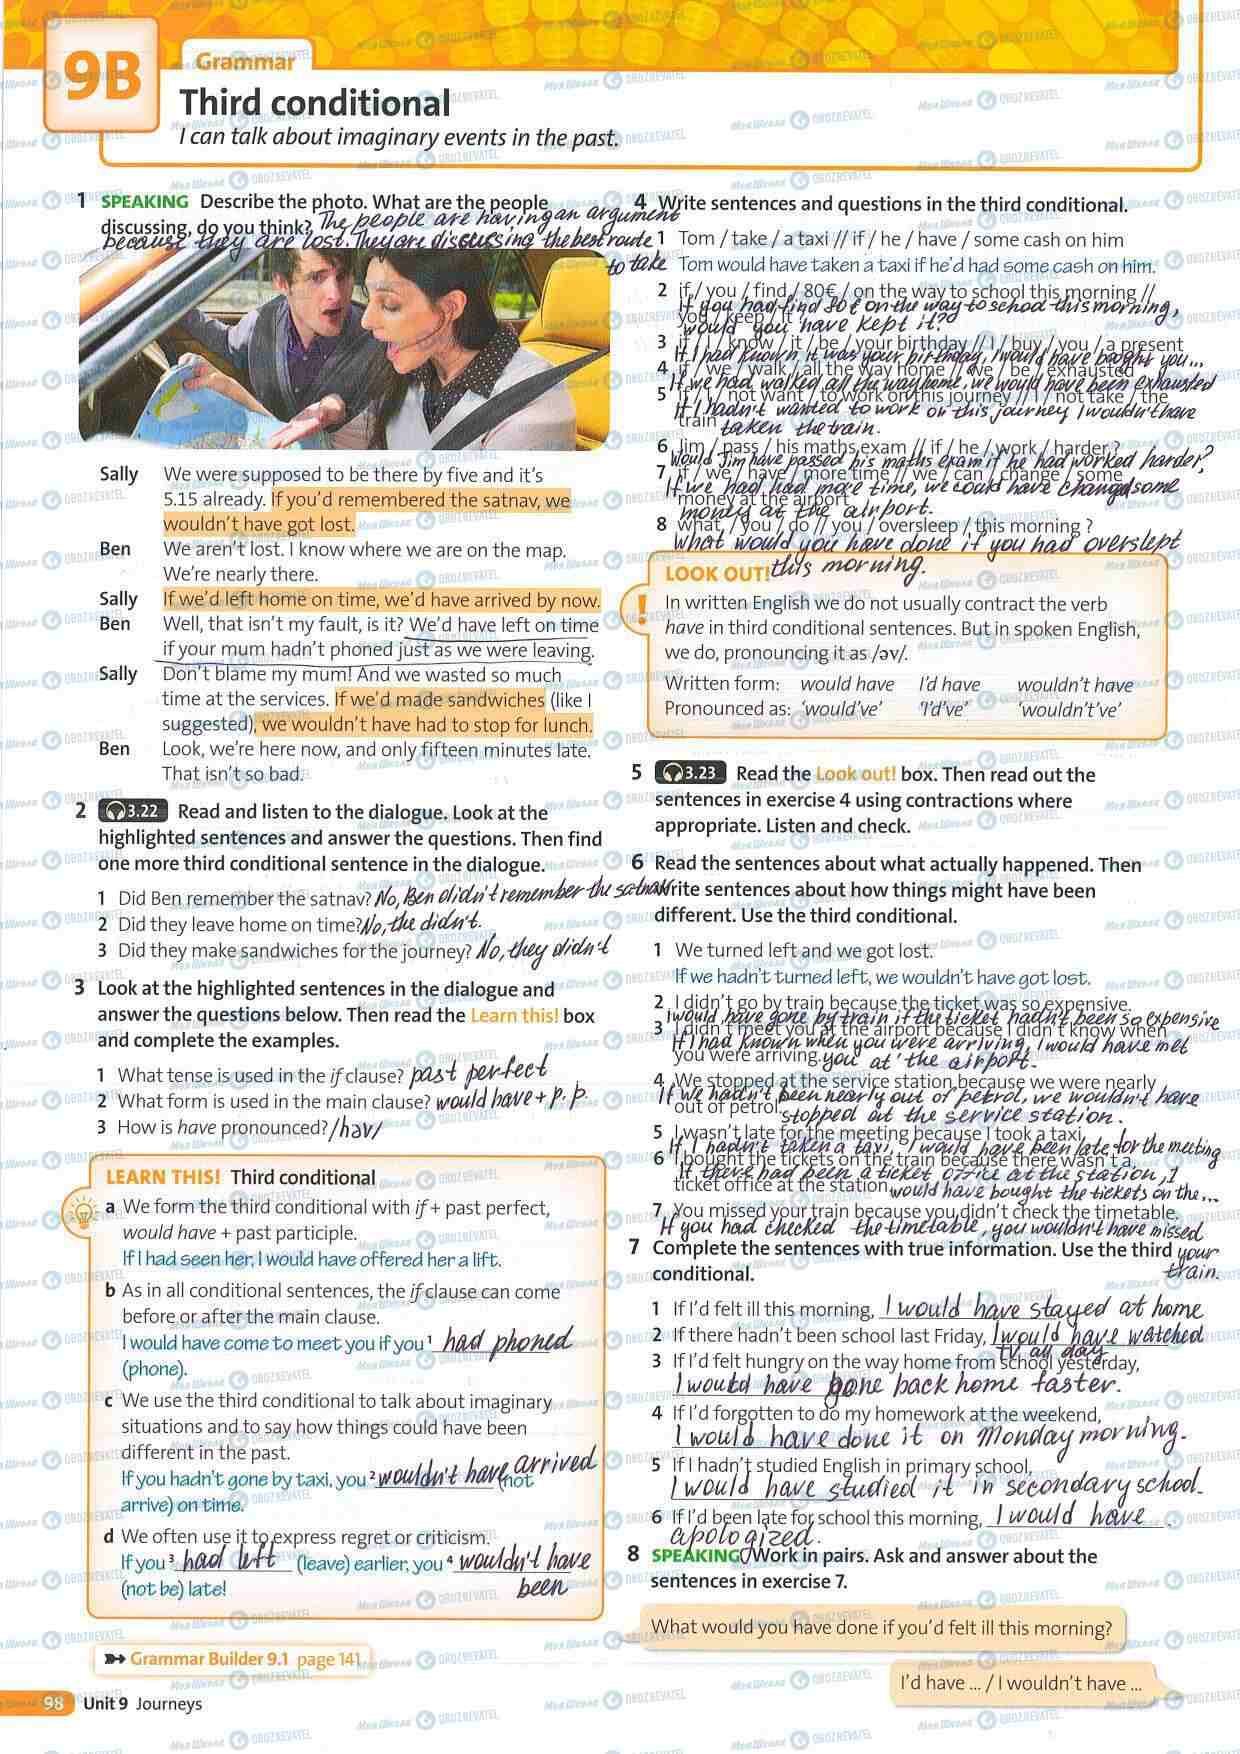 9B
Grammar
Third conditional
I can talk about imaginary events in the past.
1 SPEAKING Describe the photo. What are the people
discussing, do you think? The people are having an argument
because they are lost. They are discussing the best route
to take
Sally We were supposed to be there by five and it's
5.15 already. If you'd remembered the satnav, we
wouldn't have got lost.
Ben We aren't lost. I know where we are on the map.
We're nearly there.
Sally If we'd left home on time, we'd have arrived by now.
Ben Well, that isn't my fault, is it? We'd have left on time
if your mum hadn't phoned just as we were leaving.
Sally Don't blame my mum! And we wasted so much
time at the services. If we'd made sandwiches (like I
suggested), we wouldn't have had to stop for lunch.
Ben Look, we're here now, and only fifteen minutes late.
That isn't so bad.
2 3.22 Read and listen to the dialogue. Look at the
highlighted sentences and answer the questions. Then find
one more third conditional sentence in the dialogue.
1 Did Ben remember the satnav? No, Ben didn't remember the satnav
2 Did they leave home on time? No, the didn't.
3 Did they make sandwiches for the journey? No, they didn't
3 Look at the highlighted sentences in the dialogue and
answer the questions below. Then read the Learn this! box
and complete the examples.
1 What tense is used in the if clause? past perfect
2 What form is used in the main clause? would have + p.p.
3 How is have pronounced? /həv/
LEARN THIS! Third conditional
a We form the third conditional with if + past perfect,
would have + past participle.
If I had seen her, I would have offered her a lift.
b As in all conditional sentences, the if clause can come
before or after the main clause.
I would have come to meet you if you ¹ had phoned
(phone).
c We use the third conditional to talk about imaginary
situations and to say how things could have been
different in the past.
If you hadn't gone by taxi, you ² wouldn't have arrived (not
arrive) on time.
d We often use it to express regret or criticism.
If you ³ had left (leave) earlier, you ⁴ wouldn't have
been
(not be) late!
Grammar Builder 9.1 page 141
98 Unit 9 Journeys
4 Write sentences and questions in the third conditional.
1 Tom / take / a taxi // if / he / have / some cash on him
Tom would have taken a taxi if he'd had some cash on him.
2 if / you / find / 80€ / on the way to school this morning //
If you had find 80€ on the way to school this morning,
you / keep / it ?
would you have kept it?
3 if / I / know / it / be / your birthday // I / buy / you / a present
If I had known it was your birthday, I would have bought you...
4 if / we / walk / all the way home // we / be / exhausted
If we had walked all the way home, we would have been exhausted
5 if / I / not want / to work on this journey // I / not take / the
If I hadn't wanted to work on this journey I wouldn't have
train taken the train.
6 Jim / pass / his maths exam // if / he / work / harder ?
Would Jim have passed his maths exam if he had worked harder?
7 if / we / have / more time // we / can / change / some
If we had had more time, we could have changed some
money at the airport
money at the airport.
8 what / you / do // you / oversleep / this morning ?
What would you have done if you had overslept
this morning.
LOOK OUT!
In written English we do not usually contract the verb
have in third conditional sentences. But in spoken English,
we do, pronouncing it as /əv/.
Written form: would have I'd have wouldn't have
Pronounced as: 'would've' 'I'd've' 'wouldn't've'
5 3.23 Read the Look out! box. Then read out the
sentences in exercise 4 using contractions where
appropriate. Listen and check.
6 Read the sentences about what actually happened. Then
write sentences about how things might have been
different. Use the third conditional.
1 We turned left and we got lost.
If we hadn't turned left, we wouldn't have got lost.
2 I didn't go by train because the ticket was so expensive.
I would have gone by train if the ticket hadn't been so expensive
3 I didn't meet you at the airport because I didn't know when
If I had known when you were arriving, I would have met
you were arriving. you at the airport.
4 We stopped at the service station because we were nearly
If we hadn't been nearly out of petrol, we wouldn't have
out of petrol. stopped at the service station.
5 I wasn't late for the meeting because I took a taxi.
If I hadn't taken a taxi, I would have been late for the meeting
6 I bought the tickets on the train because there wasn't a
If there had been a ticket office at the station, I
ticket office at the station. would have bought the tickets on the...
7 You missed your train because you didn't check the timetable.
If you had checked the timetable, you wouldn't have missed
your
train.
7 Complete the sentences with true information. Use the third
conditional.
1 If I'd felt ill this morning, I would have stayed at home
2 If there hadn't been school last Friday, I would have watched
TV all day
3 If I'd felt hungry on the way home from school yesterday,
I would have gone back home faster.
4 If I'd forgotten to do my homework at the weekend,
I would have done it on Monday morning.
5 If I hadn't studied English in primary school,
I would have studied it in secondary school.
6 If I'd been late for school this morning, I would have
apologized.
8 SPEAKING Work in pairs. Ask and answer about the
sentences in exercise 7.
What would you have done if you'd felt ill this morning?
I'd have ... / I wouldn't have ...